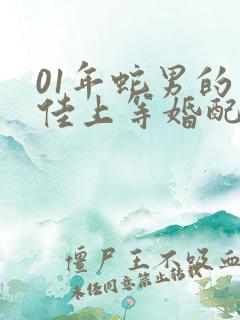 01年蛇男的
佳上等婚配
僵尸王不吸血
未经同意禁止转载